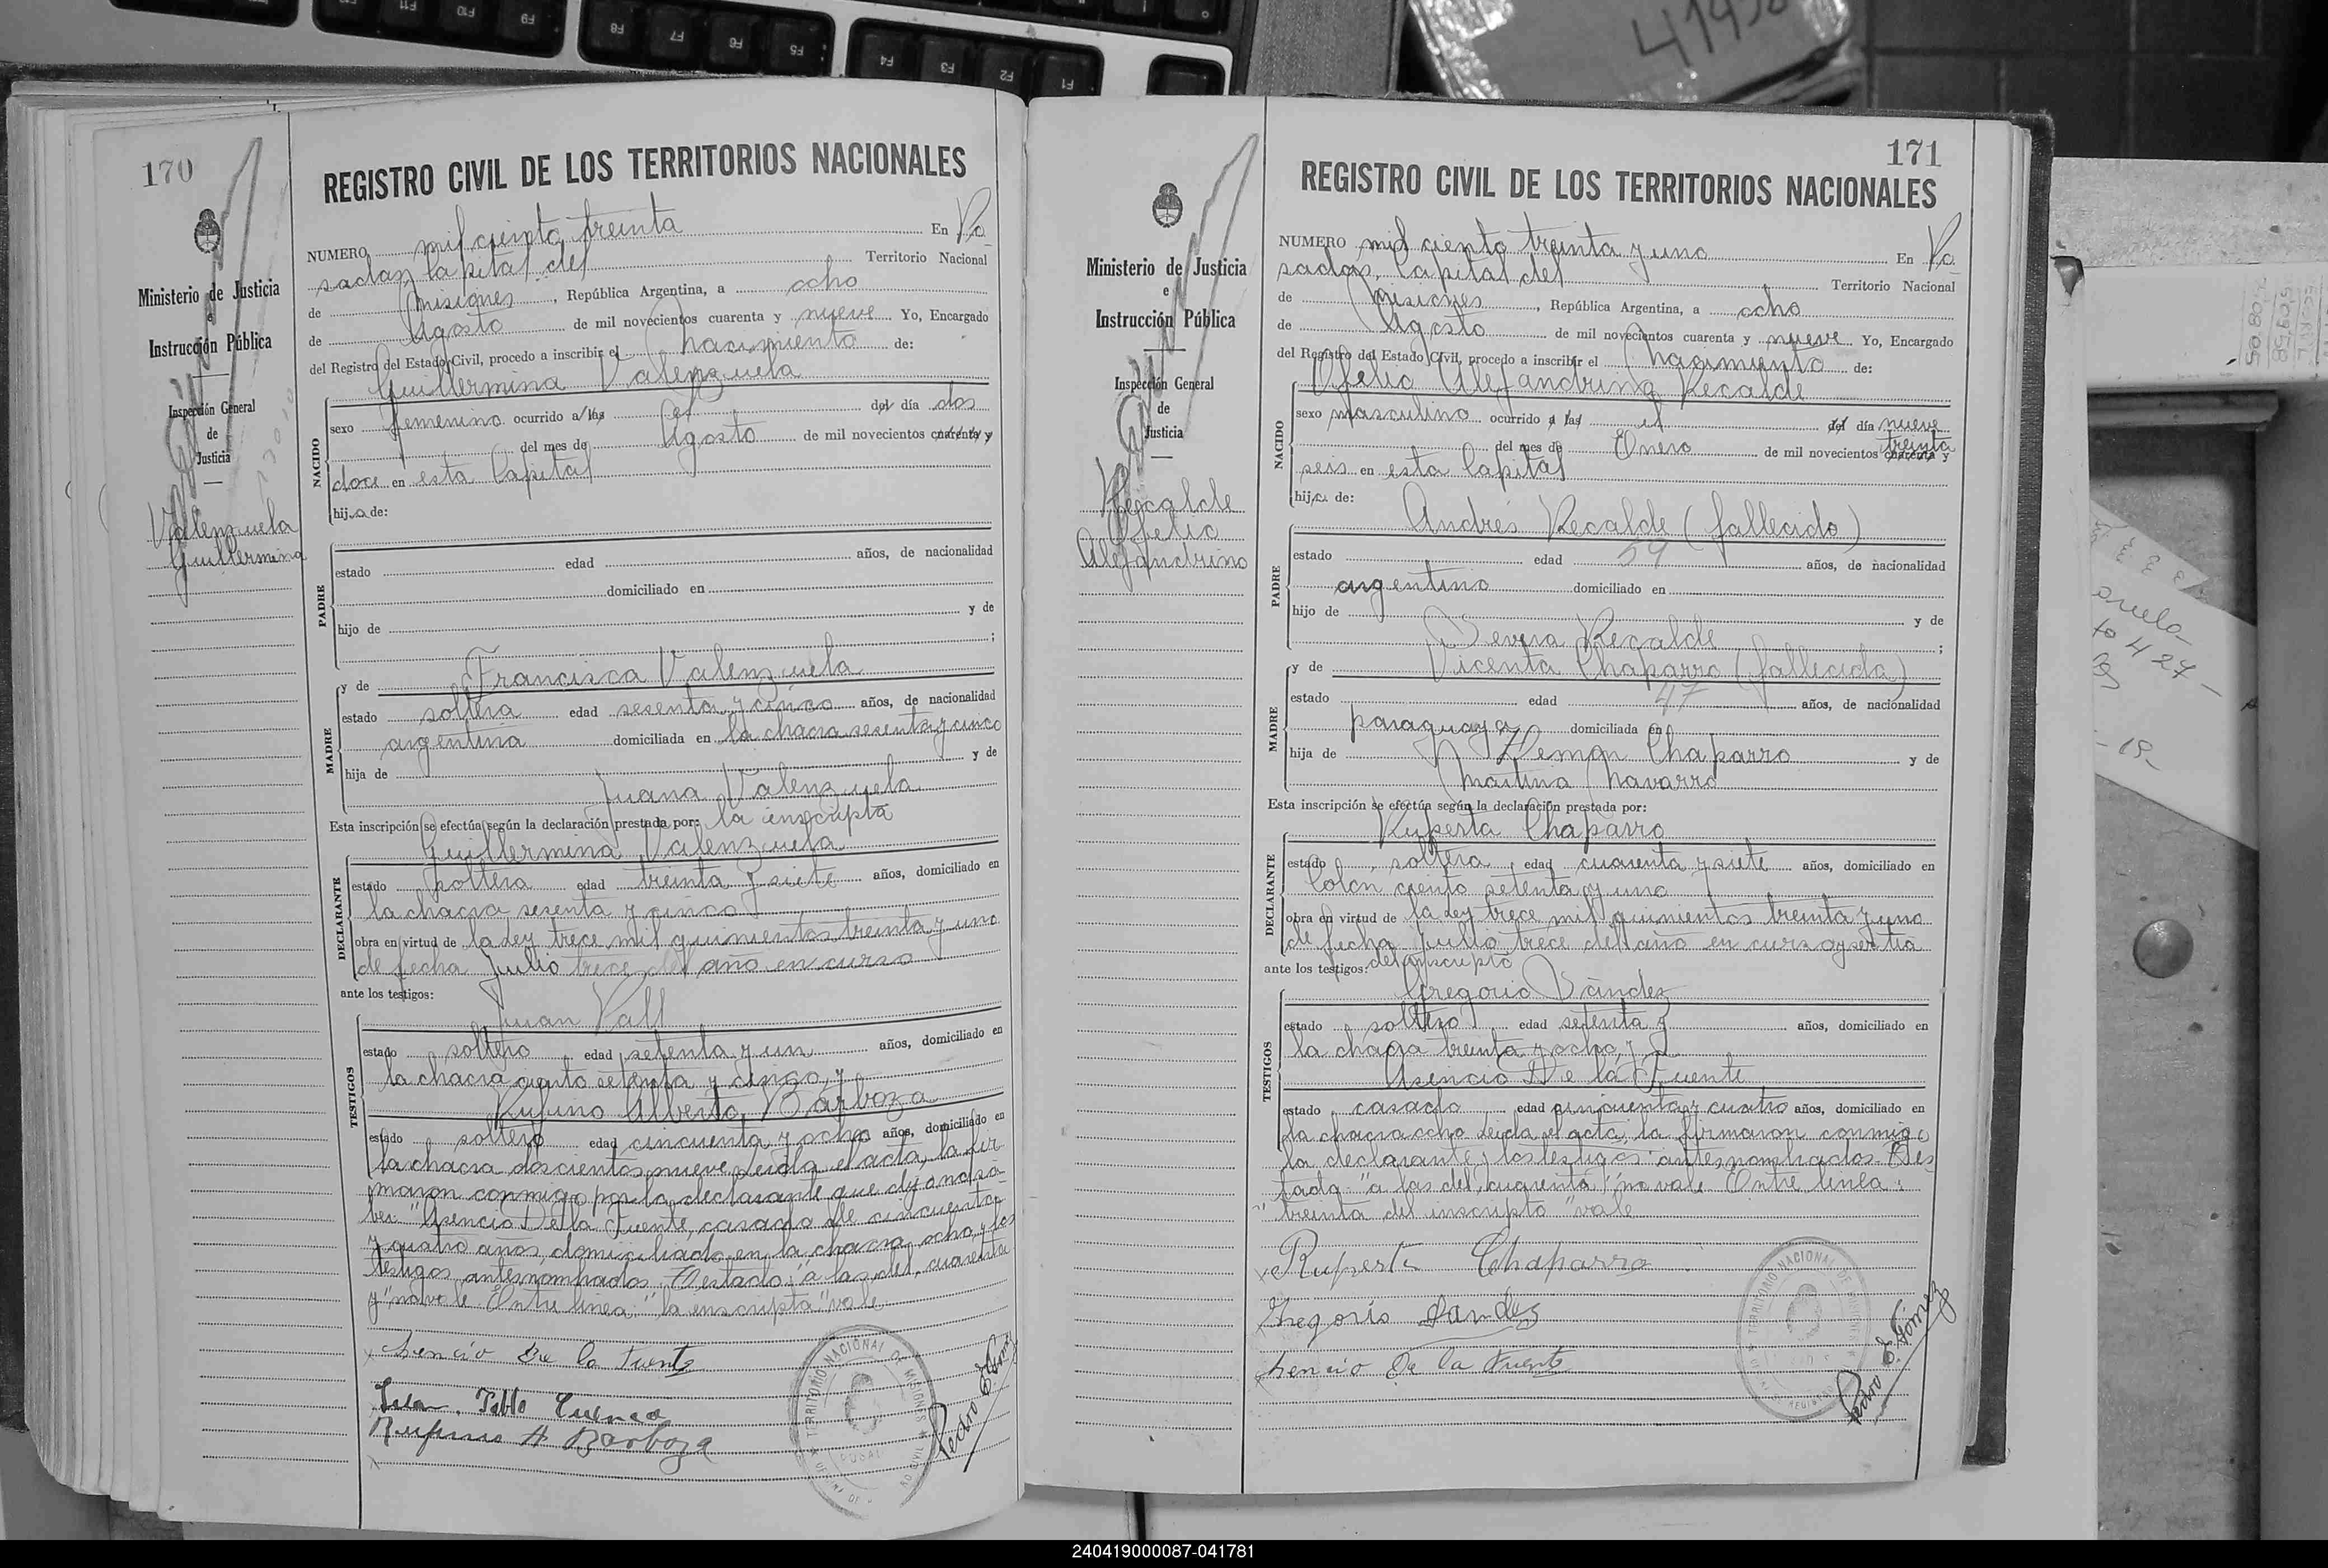 170
REGISTRO CIVIL DE LOS TERRITORIOS NACIONALES
Ministerio de Justicia
e
Instrucción Pública
Inspección General
de
Justicia
Valenzuela
Guillermina
NUMERO mil ciento treinta En Po
sadas, Capital del Territorio Nacional
de Misiones, República Argentina, a ocho
de Agosto de mil novecientos cuarenta y nueve Yo, Encargado
del Registro del Estado Civil, procedo a inscribir el nacimiento de:
Guillermina Valenzuela
NACIDO
sexo femenino ocurrido a las el del día dos
del mes de Agosto de mil novecientos cuarenta y
doce en esta Capital
hija de:
PADRE
estado edad años, de nacionalidad
domiciliado en
hijo de y de
;
y de Francisca Valenzuela
MADRE
estado soltera edad sesenta y cinco años, de nacionalidad
argentina domiciliada en la chacra sesenta y cinco
hija de y de
Juana Valenzuela
Esta inscripción se efectúa según la declaración prestada por: la inscripta
Guillermina Valenzuela
DECLARANTE
estado soltera edad treinta y siete años, domiciliado en
la chacra sesenta y cinco
obra en virtud de la Ley trece mil quinientos treinta y uno
de fecha Julio trece del año en curso
ante los testigos:
Juan
TESTIGOS
estado soltero edad setenta y un años, domiciliado en
la chacra ciento setenta y cinco, y
Rufino Alberto Barboza
estado soltero edad cincuenta y ocho años, domiciliado en
la chacra doscientos nueve. Leída el acta, la fir
maron conmigo por la declarante que dijo no sa-
ber: "Asencio De la Fuente, casado de cincuenta
y cuatro años, domiciliado en la chacra ocho, y los
testigos antesnombrados. Testado: "a las, del, cuarenta
y" no vale. Entre línea: "la inscripta" vale.
Asencio De la Fuente
Juan Pablo Cuenca
Rufino A Barboza
Pedro E. Gómez
TERRITORIO NACIONAL DE MISIONES
171
REGISTRO CIVIL DE LOS TERRITORIOS NACIONALES
Ministerio de Justicia
e
Instrucción Pública
Inspección General
de
Justicia
Recalde
Ofelio
Alejandrino
NUMERO mil ciento treinta y uno En Po
sadas, Capital del Territorio Nacional
de Misiones, República Argentina, a ocho
de Agosto de mil novecientos cuarenta y nueve Yo, Encargado
del Registro del Estado Civil, procedo a inscribir el nacimiento de:
Ofelio Alejandrino Recalde
NACIDO
sexo masculino ocurrido a las el del día nueve
treinta
del mes de Enero de mil novecientos cuarenta y
seis en esta Capital
hijo de:
Andrés Recalde (fallecido)
PADRE
estado edad 54 años, de nacionalidad
argentino domiciliado en
hijo de y de
Recalde ;
y de Vicenta Chaparro (fallecida)
MADRE
estado edad 47 años, de nacionalidad
paraguaya domiciliada en
hija de Chaparro y de
Martina Navarro
Esta inscripción se efectúa según la declaración prestada por:
Ruperta Chaparro
DECLARANTE
estado soltera, edad cuarenta y siete años, domiciliado en
Colón ciento setenta y uno
obra en virtud de la Ley trece mil quinientos treinta y uno
de fecha Julio trece del año en curso y es tía
ante los testigos: del inscripto
Gregorio
TESTIGOS
estado soltero edad setenta y años, domiciliado en
la chacra treinta y ocho, y
Asencio De la Fuente
estado casado edad cincuenta y cuatro años, domiciliado en
la chacra ocho. Leída el acta, la firmaron conmigo
la declarante y los testigos antesnombrados. Tes
tado: "a las, del, cuarenta" no vale. Entre línea:
"treinta del inscripto" vale
Ruperta Chaparro
Gregorio
Asencio De la Fuente
Pedro E. Gómez
TERRITORIO NACIONAL DE MISIONES
F1
F2
F3
F4
F5
F6
F7
F8
F9
F10
F11
240419000087-041781